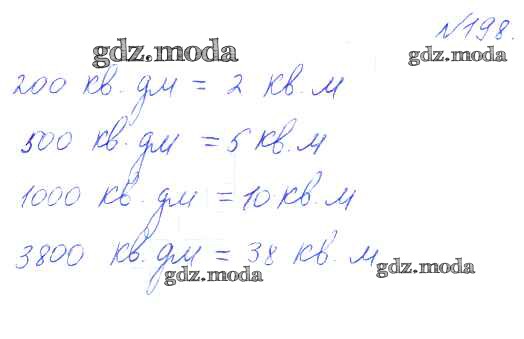 №198.
gdz.moda gdz.moda
200 кв. дм = 2 кв. м
500 кв. дм = 5 кв. м
1000 кв. дм = 10 кв. м
3800 кв. дм = 38 кв. м
gdz.moda gdz.moda